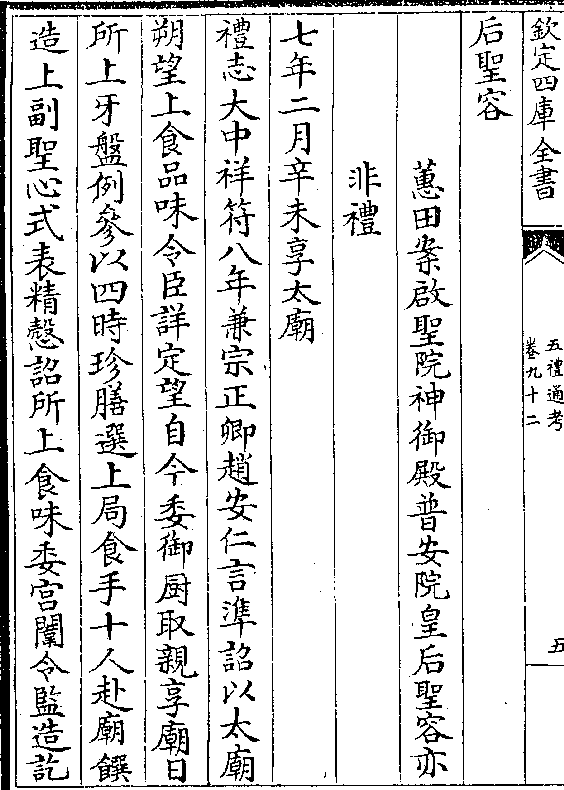 欽定四庫全書
五禮通考
卷九十二
五
后聖容
蕙田案啟聖院神御殿普安院皇后聖容亦
非禮
七年二月辛未享太廟
禮志大中祥符八年兼宗正卿趙安仁言準詔以太廟
朔望上食品味令臣詳定望自今委御厨取親享廟日
所上牙盤例參以四時珍膳選上局食手十人赴廟饌
造上副聖心式表精慤詔所上食味委宮闈令監造訖